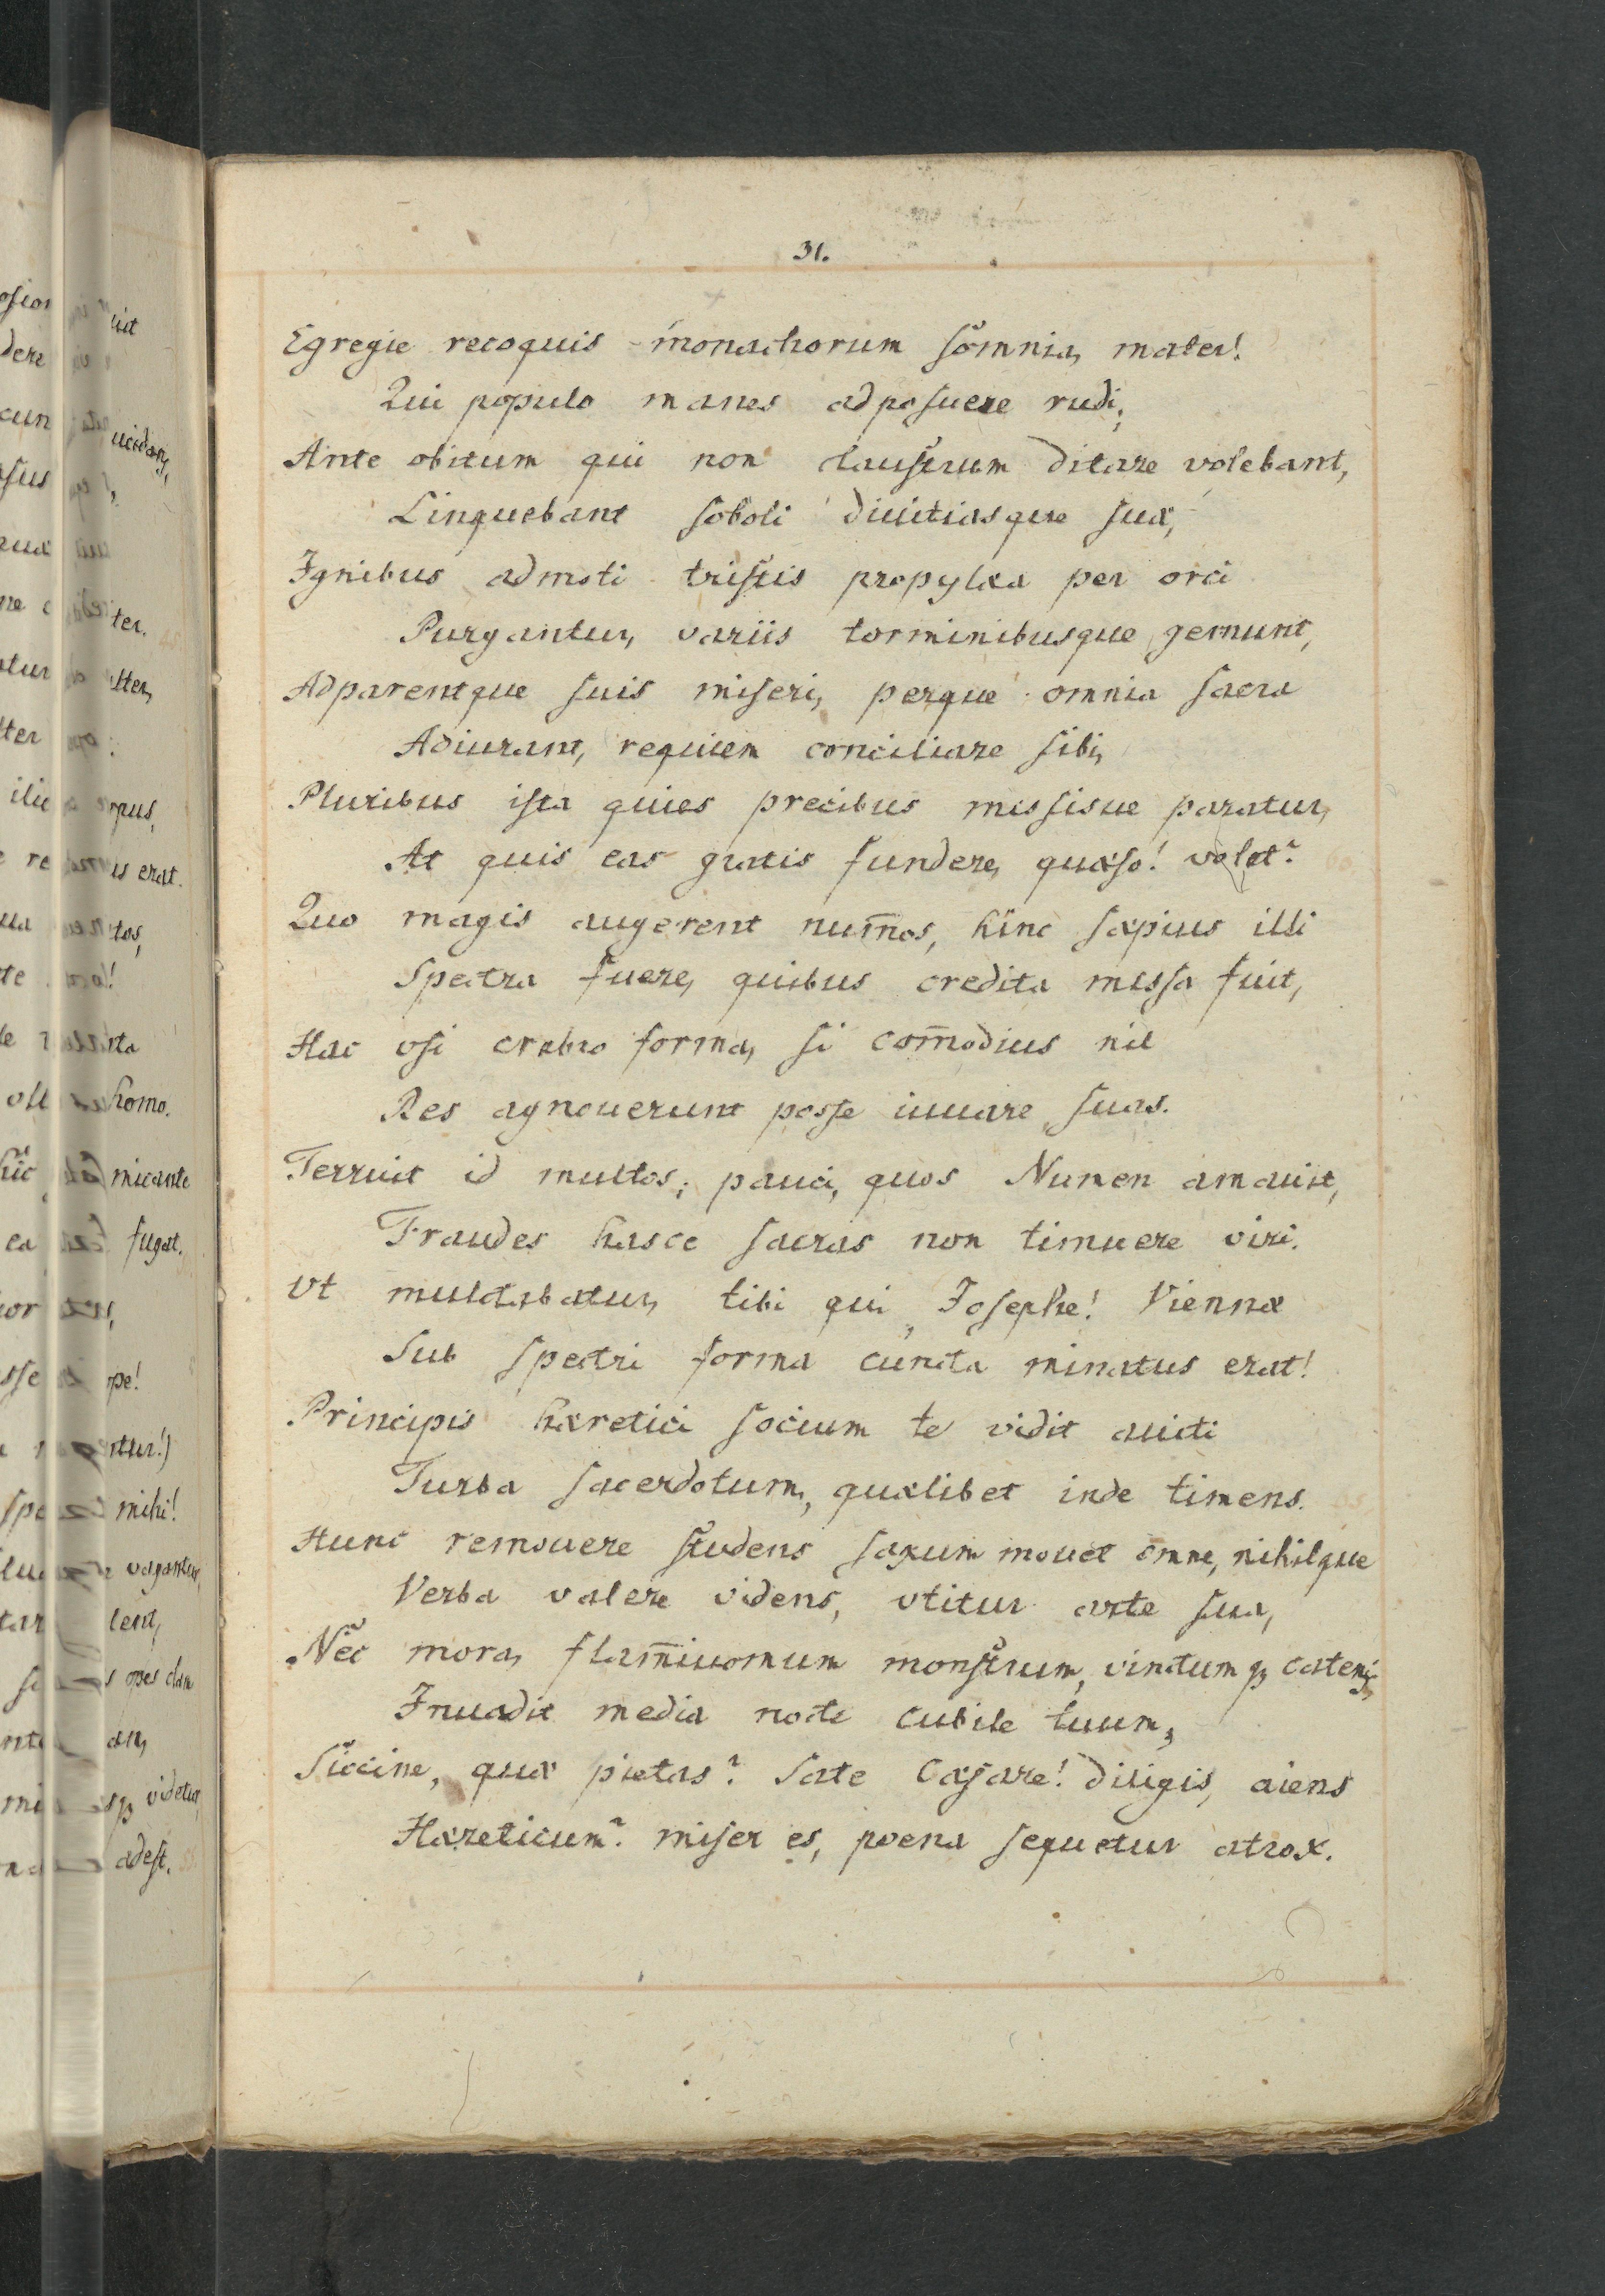 31.
Egregie recoquis monachorum somnia, mater!
Qui populo manes adposuere rudi;
Ante obitum qui non claustrum ditare volebant,
Linquebant soboli diuitiasque suæ,
Ignibus admoti tristis propylæa per orci
Purgantur, variis torminibusque gemunt,
Adparentque suis miseri, perque omnia sacra
Adiurant, requiem conciliare sibi,
Pluribus ista quies precibus missisue paratur,
At quis eas gratis fundere, quæso! volet?
Quo magis augerent num̄os, hinc sæpius illi
Spectra fuere, quibus credita missa fuit,
Hac vsi crebro forma, si com̄odius nil
Res agnouerunt posse iuuare suas.
Terruit id multos; pauci, quos Numen amauit,
Fraudes hasce sacras non timuere viri.
Vt mulctabatur, tibi qui, Josephe! Viennæ
Sub spectri forma cuncta minatus erat!
Principis hæretici socium te vidit auiti
Turba sacerdotum, quælibet inde timens.
Hunc remouere studens saxum mouet omne, nihilque
Verba valere videns, vtitur arte sua,
Nec mora, flam̄iuomum monstrum, vinctumqȝ catenis,
Inuadit media nocte cubile tuum,
Siccine, quæ pietas? Sate Cæsare! diligis, aiens
Hæreticum? miser es, poena sequetur atrox.
uit
ucidary,
ter.
lter,
rpus,
us erat.
tos,
homo.
micante
fugat.
ope!
mihi!
vagantur,
lent,
s opes clam
videtur,
adest.